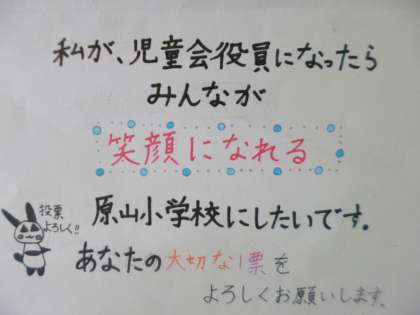 私が、児童会役員になったら
みんなが
笑顔になれる
原山小学校にしたいです。
投票
よろしく!!
あなたの大切な1票を
よろしくお願いします。